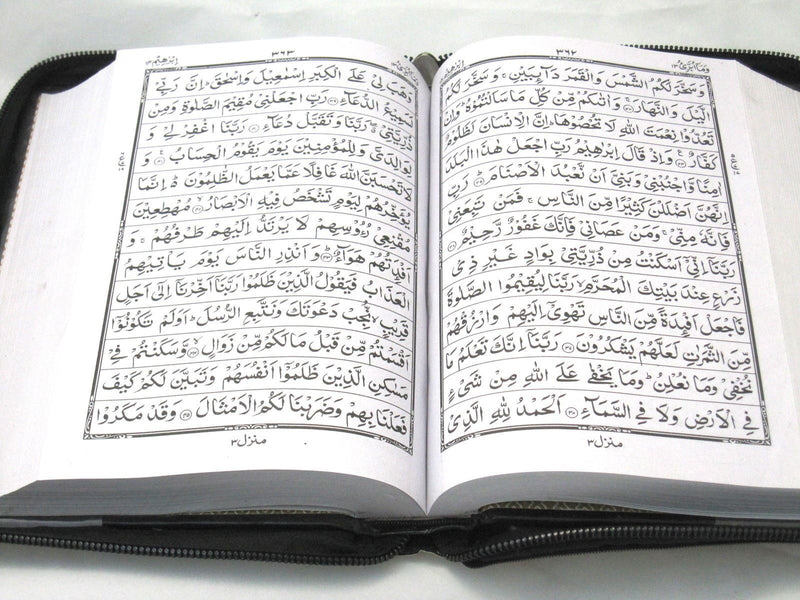 وَمَآ اُبَرِّئُ ١٣
٣٦٢
اِبْرٰهِيْم ١٤
وَسَخَّرَ لَكُمُ الشَّمْسَ وَالْقَمَرَ دَآئِبَيْنِ ۚ وَسَخَّرَ لَكُمُ
الَّيْلَ وَالنَّهَارَ ﴿٣٣﴾ وَاٰتٰىكُمْ مِّنْ كُلِّ مَا سَاَلْتُمُوْهُ ؕ وَاِنْ
تَعُدُّوْا نِعْمَتَ اللّٰهِ لَا تُحْصُوْهَا ؕ اِنَّ الْاِنْسَانَ لَظَلُوْمٌ
كَفَّارٌ ﴿٣٤﴾ وَاِذْ قَالَ اِبْرٰهِيْمُ رَبِّ اجْعَلْ هٰذَا الْبَلَدَ
اٰمِنًا وَّاجْنُبْنِيْ وَبَنِيَّ اَنْ نَّعْبُدَ الْاَصْنَامَ ﴿٣٥﴾ رَبِّ
اِنَّهُنَّ اَضْلَلْنَ كَثِيْرًا مِّنَ النَّاسِ ۚ فَمَنْ تَبِعَنِيْ
فَاِنَّهٗ مِنِّيْ ۚ وَمَنْ عَصَانِيْ فَاِنَّكَ غَفُوْرٌ رَّحِيْمٌ ﴿٣٦﴾
رَبَّنَآ اِنِّيْٓ اَسْكَنْتُ مِنْ ذُرِّيَّتِيْ بِوَادٍ غَيْرِ ذِيْ
زَرْعٍ عِنْدَ بَيْتِكَ الْمُحَرَّمِ ۙ رَبَّنَا لِيُقِيْمُوا الصَّلٰوةَ
فَاجْعَلْ اَفْئِدَةً مِّنَ النَّاسِ تَهْوِيْٓ اِلَيْهِمْ وَارْزُقْهُمْ
مِّنَ الثَّمَرٰتِ لَعَلَّهُمْ يَشْكُرُوْنَ ﴿٣٧﴾ رَبَّنَآ اِنَّكَ تَعْلَمُ مَا
نُخْفِيْ وَمَا نُعْلِنُ ؕ وَمَا يَخْفٰى عَلَى اللّٰهِ مِنْ شَيْءٍ
فِي الْاَرْضِ وَلَا فِي السَّمَآءِ ﴿٣٨﴾ اَلْحَمْدُ لِلّٰهِ الَّذِيْ
منزل ٣
٣٦٣
اِبْرٰهِيْم ١٤
وَهَبَ لِيْ عَلَى الْكِبَرِ اِسْمٰعِيْلَ وَاِسْحٰقَ ؕ اِنَّ رَبِّيْ
لَسَمِيْعُ الدُّعَآءِ ﴿٣٩﴾ رَبِّ اجْعَلْنِيْ مُقِيْمَ الصَّلٰوةِ وَمِنْ
ذُرِّيَّتِيْ ۖ رَبَّنَا وَتَقَبَّلْ دُعَآءِ ﴿٤٠﴾ رَبَّنَا اغْفِرْ لِيْ وَ
لِوَالِدَيَّ وَلِلْمُؤْمِنِيْنَ يَوْمَ يَقُوْمُ الْحِسَابُ ﴿٤١﴾ وَ
لَا تَحْسَبَنَّ اللّٰهَ غَافِلًا عَمَّا يَعْمَلُ الظّٰلِمُوْنَ ؕ اِنَّمَا
يُؤَخِّرُهُمْ لِيَوْمٍ تَشْخَصُ فِيْهِ الْاَبْصَارُ ﴿٤٢﴾ مُهْطِعِيْنَ
مُقْنِعِيْ رُءُوْسِهِمْ لَا يَرْتَدُّ اِلَيْهِمْ طَرْفُهُمْ ۚ وَ
اَفْئِدَتُهُمْ هَوَآءٌ ﴿٤٣﴾ وَاَنْذِرِ النَّاسَ يَوْمَ يَاْتِيْهِمُ
الْعَذَابُ فَيَقُوْلُ الَّذِيْنَ ظَلَمُوْا رَبَّنَآ اَخِّرْنَآ اِلٰٓى اَجَلٍ
قَرِيْبٍ ۙ نُّجِبْ دَعْوَتَكَ وَنَتَّبِعِ الرُّسُلَ ؕ اَوَلَمْ تَكُوْنُوْٓا
اَقْسَمْتُمْ مِّنْ قَبْلُ مَا لَكُمْ مِّنْ زَوَالٍ ﴿٤٤﴾ وَّسَكَنْتُمْ فِيْ
مَسٰكِنِ الَّذِيْنَ ظَلَمُوْٓا اَنْفُسَهُمْ وَتَبَيَّنَ لَكُمْ كَيْفَ
فَعَلْنَا بِهِمْ وَضَرَبْنَا لَكُمُ الْاَمْثَالَ ﴿٤٥﴾ وَقَدْ مَكَرُوْا
منزل ٣